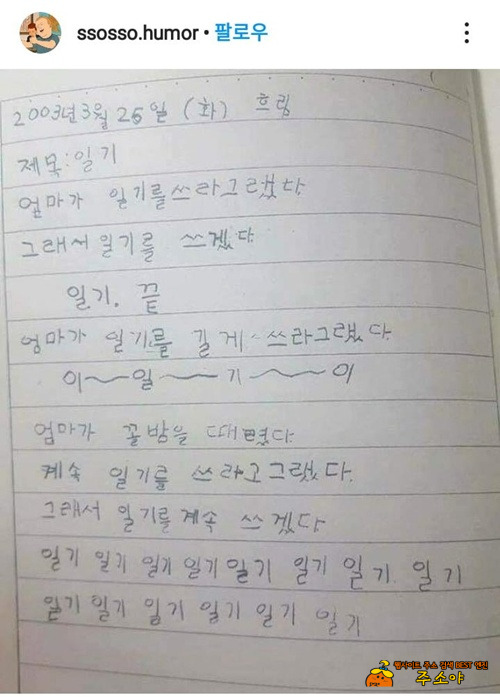 ssosso.humor • 팔로우
2003년3월 25일 (화) 흐림
제목:일기
엄마가 일기를쓰라그랬다
그래서 일기를 쓰겠다.
일기. 끝
엄마가 일기를 길게 쓰라그랬다.
이~일~기~이
엄마가 꿀밤을 때렸다.
계속 일기를 쓰라고그랬다.
그래서 일기를계속 쓰겠다
일기 일기 일기 일기 일기 일기 일기. 일기
일기 일기 일기 일기 일기 일기
웹사이트 주소 검색 BEST 엔진
주소야